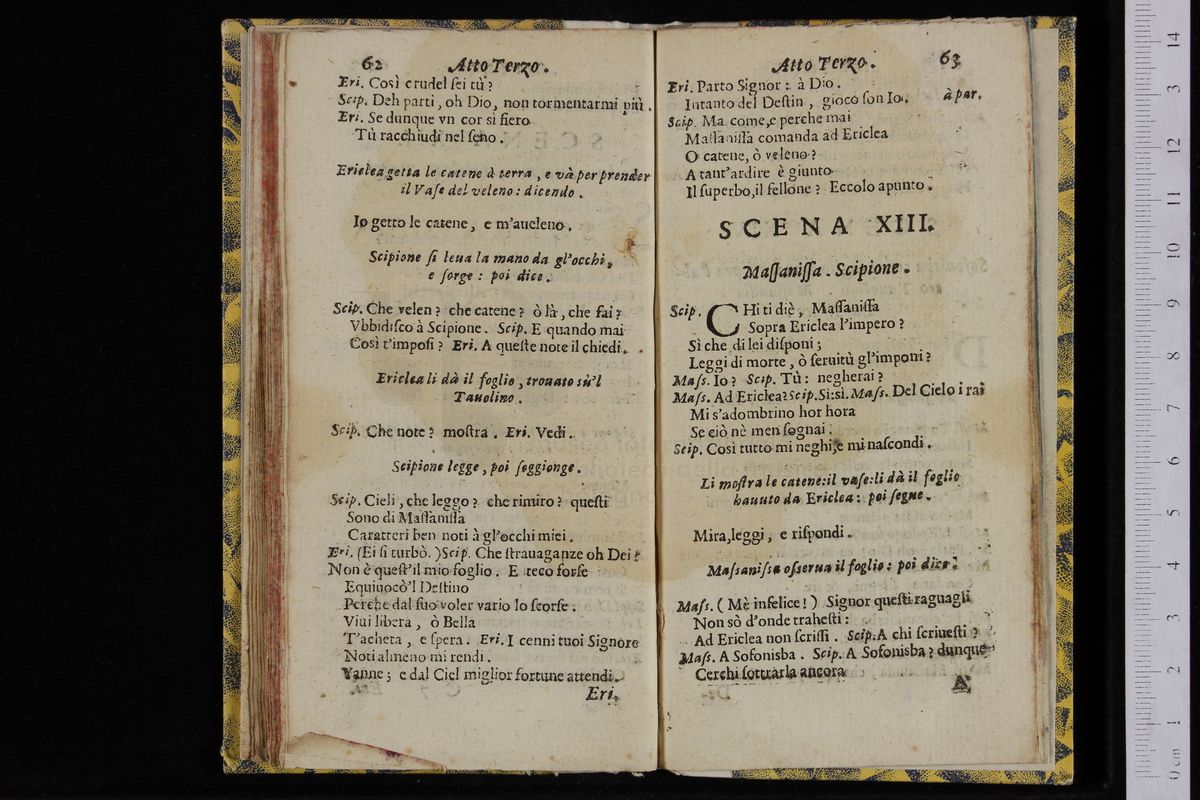 62 Atto Terzo.
Eri. Così crudel sei tù?
Scip. Deh parti, oh Dio, non tormentarmi più.
Eri. Se dunque vn cor sì fiero
Tù racchiudi nel seno.
Ericlea getta le catene à terra, e và per prender
il Vase del veleno: dicendo.
Io getto le catene, e m'aueleno.
Scipione si leua la mano da gl'occhi,
e sorge: poi dice.
Scip. Che velen? che catene? ò là, che fai?
Vbbidisco à Scipione. Scip. E quando mai
Così t'imposi? Eri. A queste note il chiedi.
Ericlea li dà il foglio, trouato sù'l
Tauolino.
Scip. Che note? mostra. Eri. Vedi.
Scipione legge, poi soggionge.
Scip. Cieli, che leggo? che rimiro? questi
Sono di Massanissa
Caratteri ben noti à gl'occhi miei.
Eri. (Ei si turbò.) Scip. Che strauaganze oh Dei?
Non è quest'il mio foglio. E teco forse
Equiuocò'l Destino
Perche dal suo voler vario lo scorse.
Viui libera, ò Bella
T'acheta, e spera. Eri. I cenni tuoi Signore
Noti almeno mi rendi.
Vanne; e dal Ciel miglior fortune attendi.
Eri.
Atto Terzo. 63
Eri. Parto Signor: à Dio.
Intanto del Destin, gioco son Io. à par.
Scip. Ma come, e perche mai
Massanissa comanda ad Ericlea
O catene, ò veleno?
A tant'ardire è giunto
Il superbo, il fellone? Eccolo apunto.
SCENA XIII.
Massanissa. Scipione.
Scip. CHi ti diè, Massanissa
Sopra Ericlea l'impero?
Sì che di lei disponi;
Leggi di morte, ò seruitù gl'imponi?
Mass. Io? Scip. Tù: negherai?
Mass. Ad Ericlea? Scip. Sì: sì. Mass. Del Cielo i rai
Mi s'adombrino hor hora
Se ciò nè men sognai.
Scip. Così tutto mi neghi, e mi nascondi.
Li mostra le catene: il vase: li dà il foglio
hauuto da Ericlea: poi segue.
Mira, leggi, e rispondi.
Massanissa osserua il foglio: poi dice.
Mass. (Mè infelice!) Signor questi raguagli
Non sò d'onde trahesti:
Ad Ericlea non scrissi. Scip. A chi scriuesti?
Mass. A Sofonisba. Scip. A Sofonisba? dunque
Cerchi sottrarla ancora
A